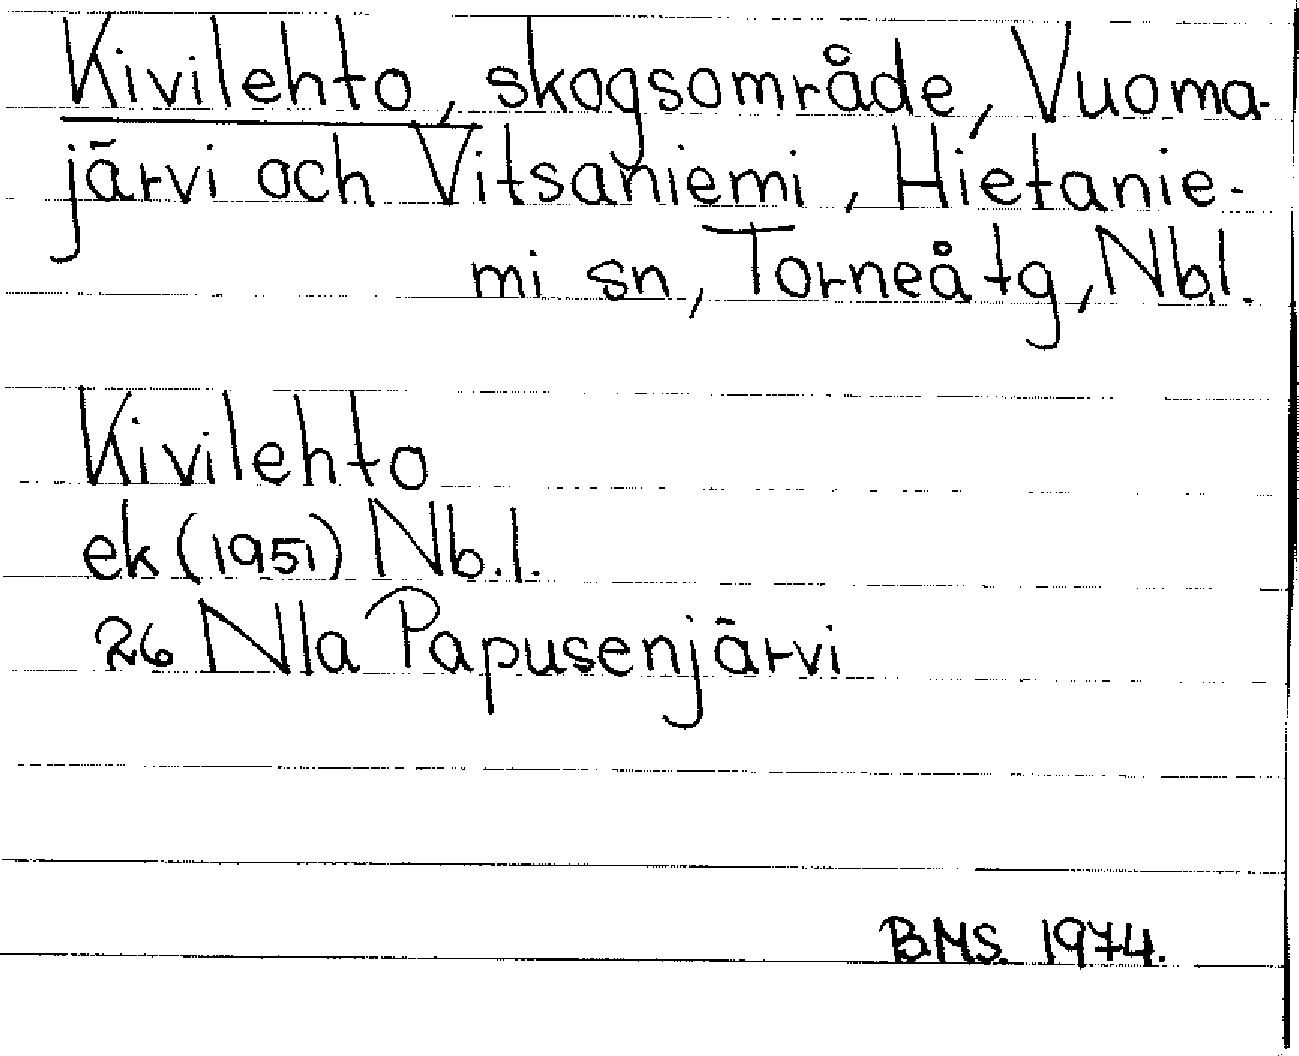 Kivilehto, skogsområde, Vuoma-
järvi och Vitsaniemi, Hietanie-
mi sn, Torneå tg, Nb.l.
Kivilehto
ek (1951) Nb.l.
26 Nla Papusenjärvi
BMS. 1974.